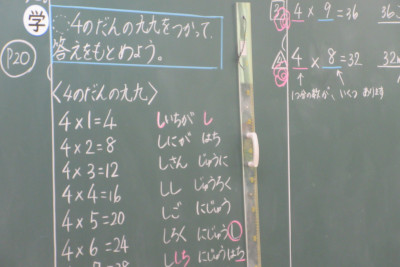 学
4のだんの九九をつかって、
答えをもとめよう。
P20
〈4のだんの九九〉
4×1=4 しいちが し
4×2=8 しにが はち
4×3=12 しさん じゅうに
4×4=16 しし じゅうろく
4×5=20 しご にじゅう
4×6=24 しろく にじゅうし
ししち にじゅうはち
4×9=36
4×8=32
1つ分の数が、いくつ